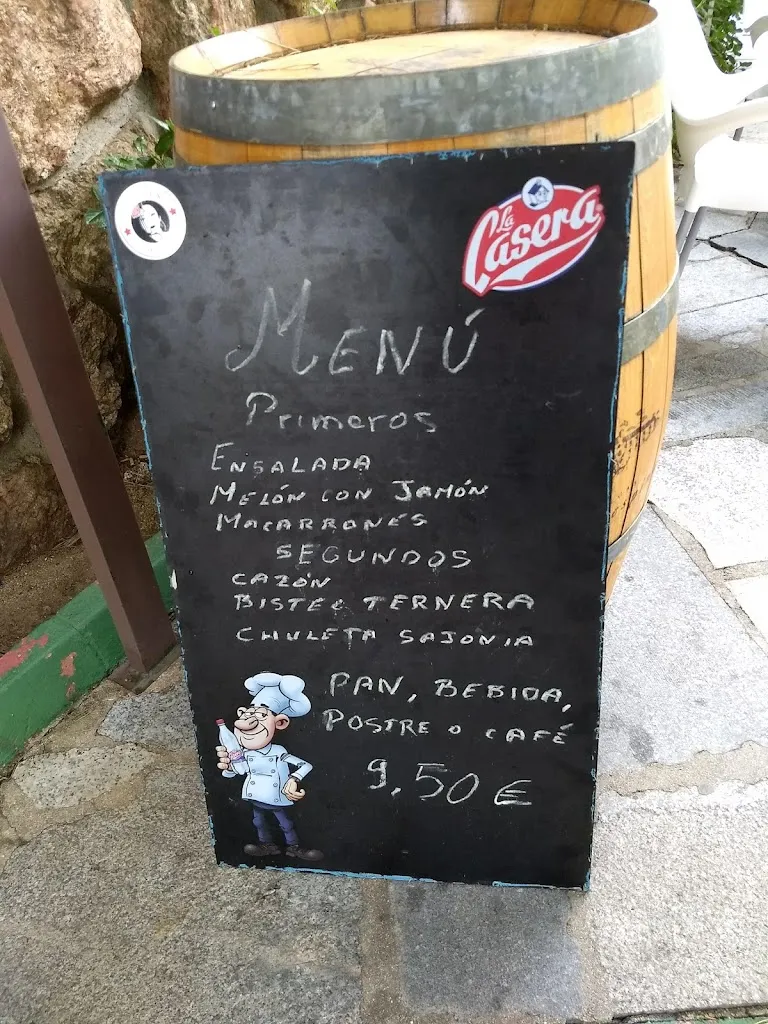 La
Casera
MENÚ
Primeros
ENSALADA
MELÓN CON JAMÓN
MACARRONÉS
SEGUNDOS
CAZÓN
BISTEC TERNERA
CHULETA SAJONIA
PAN, BEBIDA,
POSTRE O CAFÉ
9,50 €